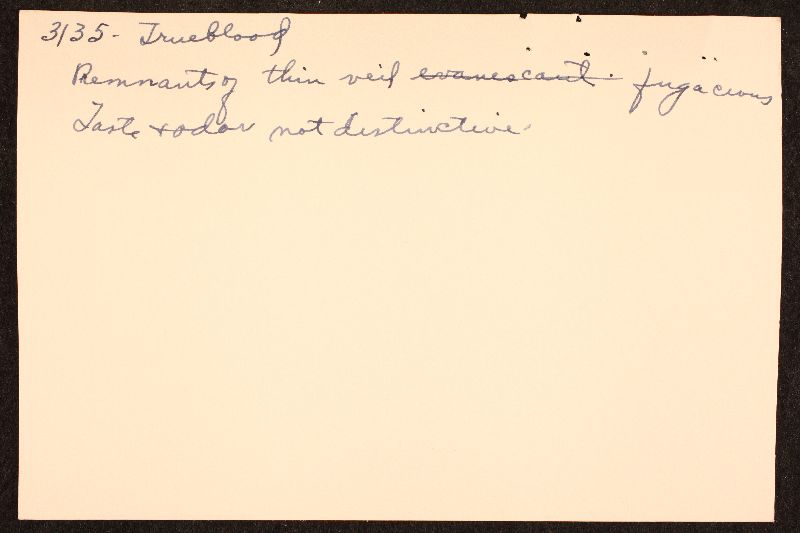 3135 - Trueblood
Remnants of thin veil evanescant. fugacious
Taste & odor not distinctive.